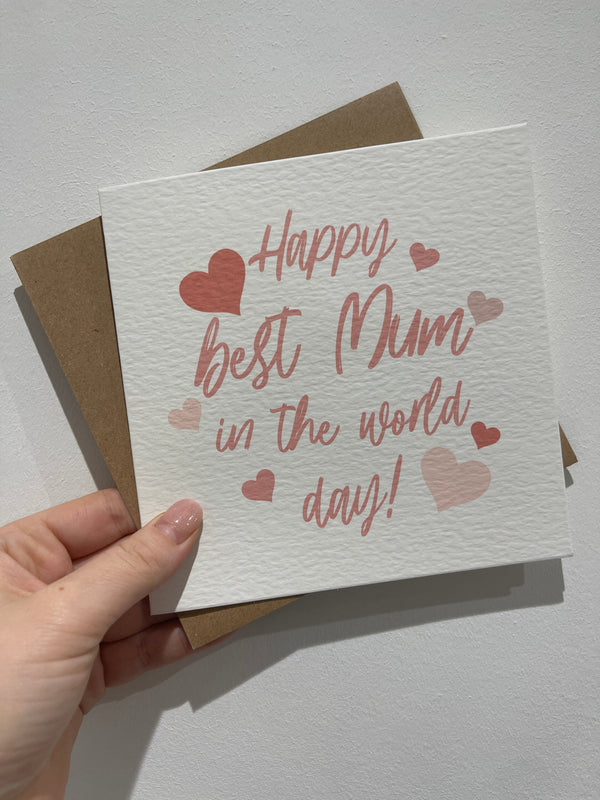 Happy
best Mum
in the world
day!